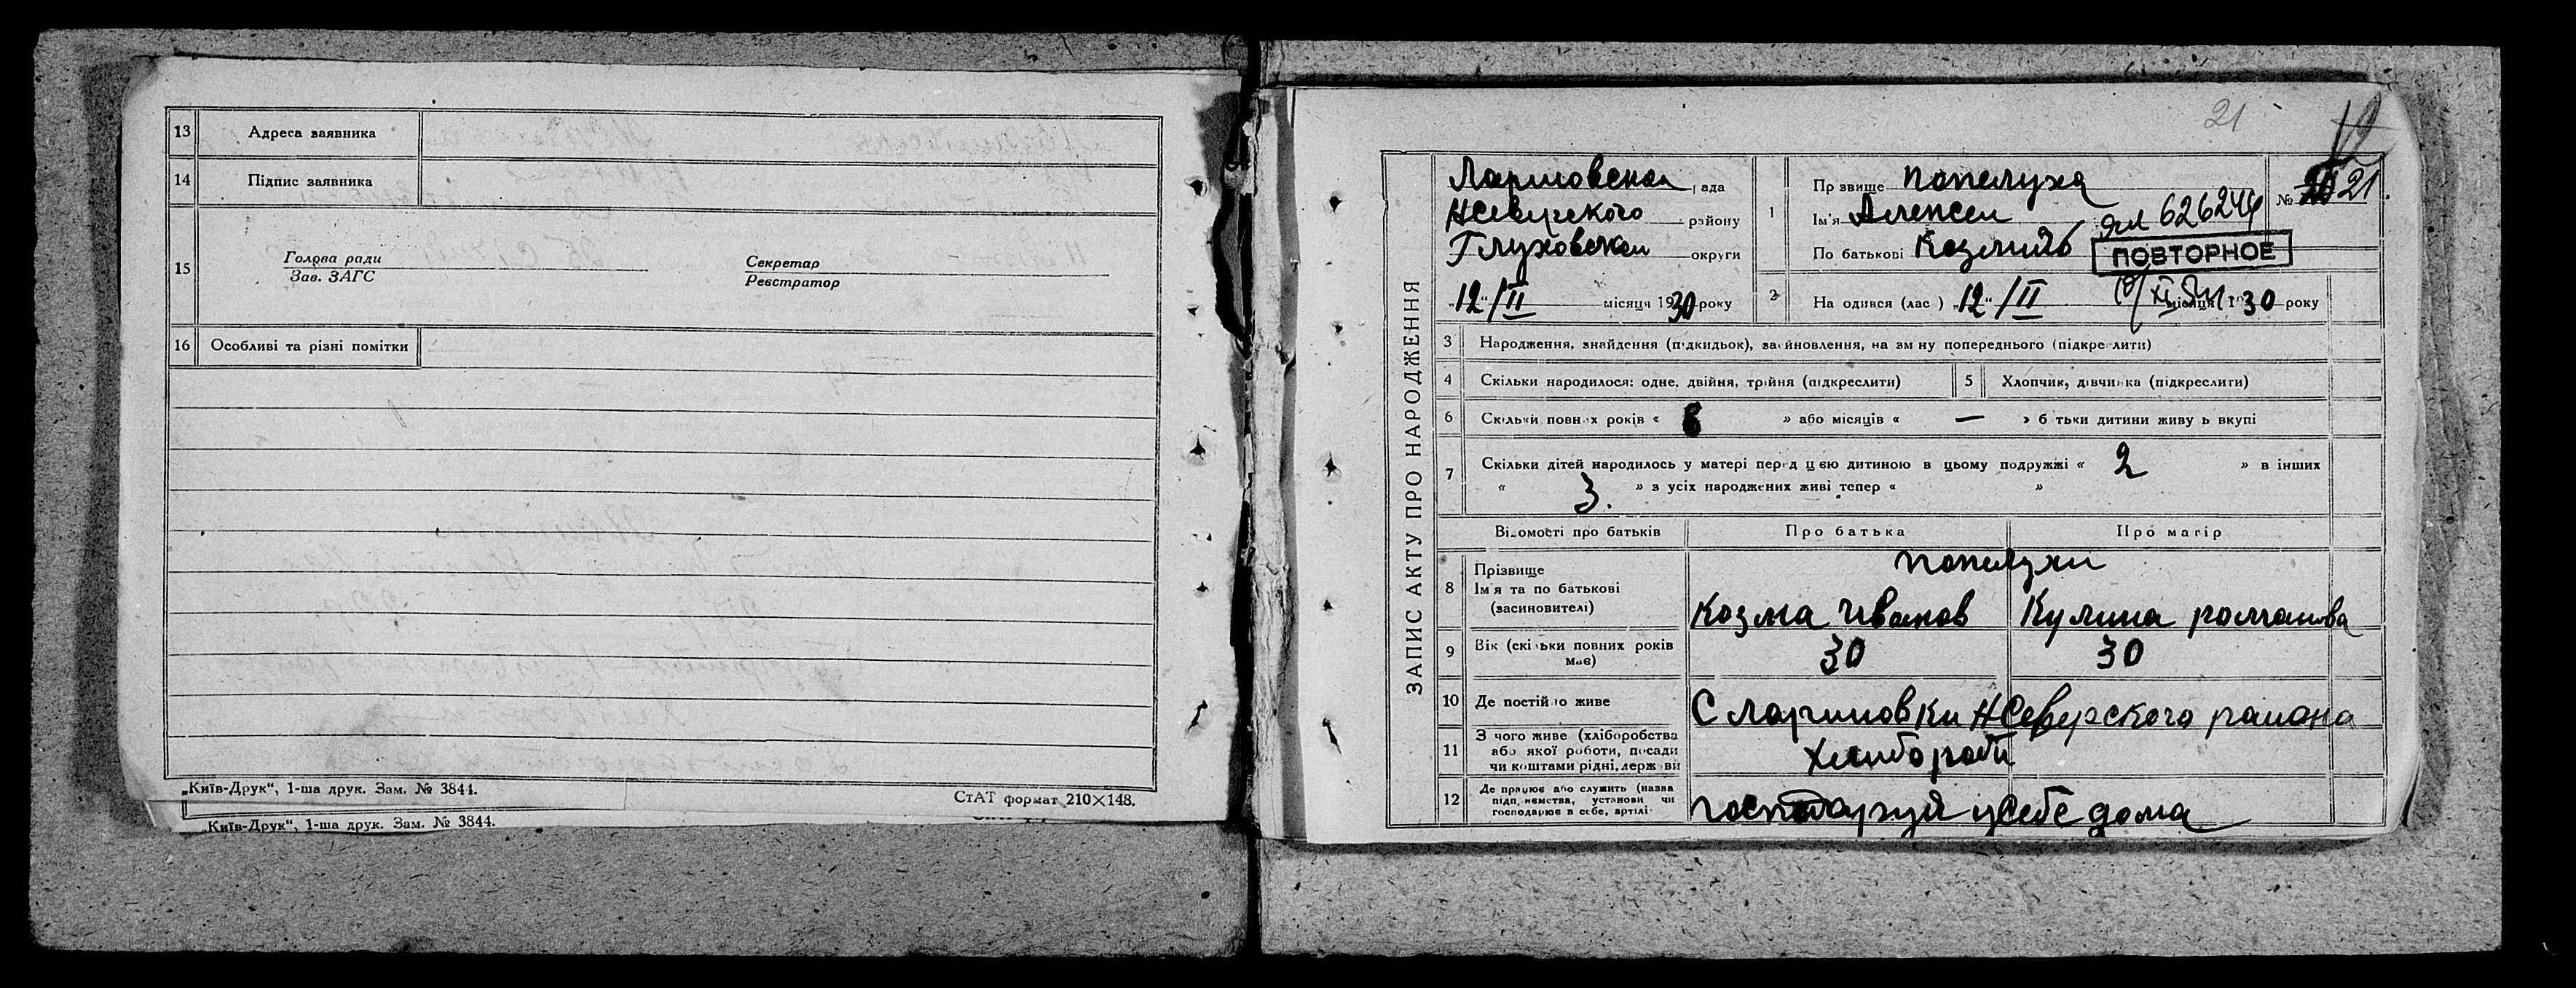 13 Адреса заявника
14 Підпис заявника
15 Голова ради
Зав. ЗАГС
Секретар
Реєстратор
16 Особливі та різні помітки
„Київ-Друк“, 1-ша друк. Зам. № 3844.
СтАТ формат 210×148.
„Київ-Друк“, 1-ша друк. Зам. № 3844.
21
ЗАПИС АКТУ ПРО НАРОДЖЕННЯ
Лариновская рада
НСеверского району
Глуховской округи
„12“/II місяця 1930 року
1 Прізвище Попелуха
Ім'я Алексей
По батькові Козмич
№ 21
626244
ПОВТОРНОЕ
2 Народився (лась) „12“/II місяця 1930 року
3 Народження, знайдення (підкидьок), засиновлення, на зміну попереднього (підкреслити)
4 Скільки народилося: одне, двійня, трійня (підкреслити)
5 Хлопчик, дівчинка (підкреслити)
6 Скільки повних років « 8 » або місяців « — » батьки дитини живуть вкупі
7 Скільки дітей народилось у матері перед цею дитиною в цьому подружжі « 2 » в інших
« 3. » з усіх народжених живі тепер « »
Відомості про батьків Про батька Про матір
8 Прізвище
Ім'я та по батькові
(засиновителі)
Попелухи
Козма Иванов Кулина романова
9 Вік (скільки повних років має) 30 30
10 Де постійно живе С Лариновки НСеверского раиона
11 З чого живе (хліборобства
або якої роботи, посади
чи коштами рідні, держави
хлибороби
12 Де працює або служить (назва
підприємства, установи чи
господарює в себе, артілі
у себе дома